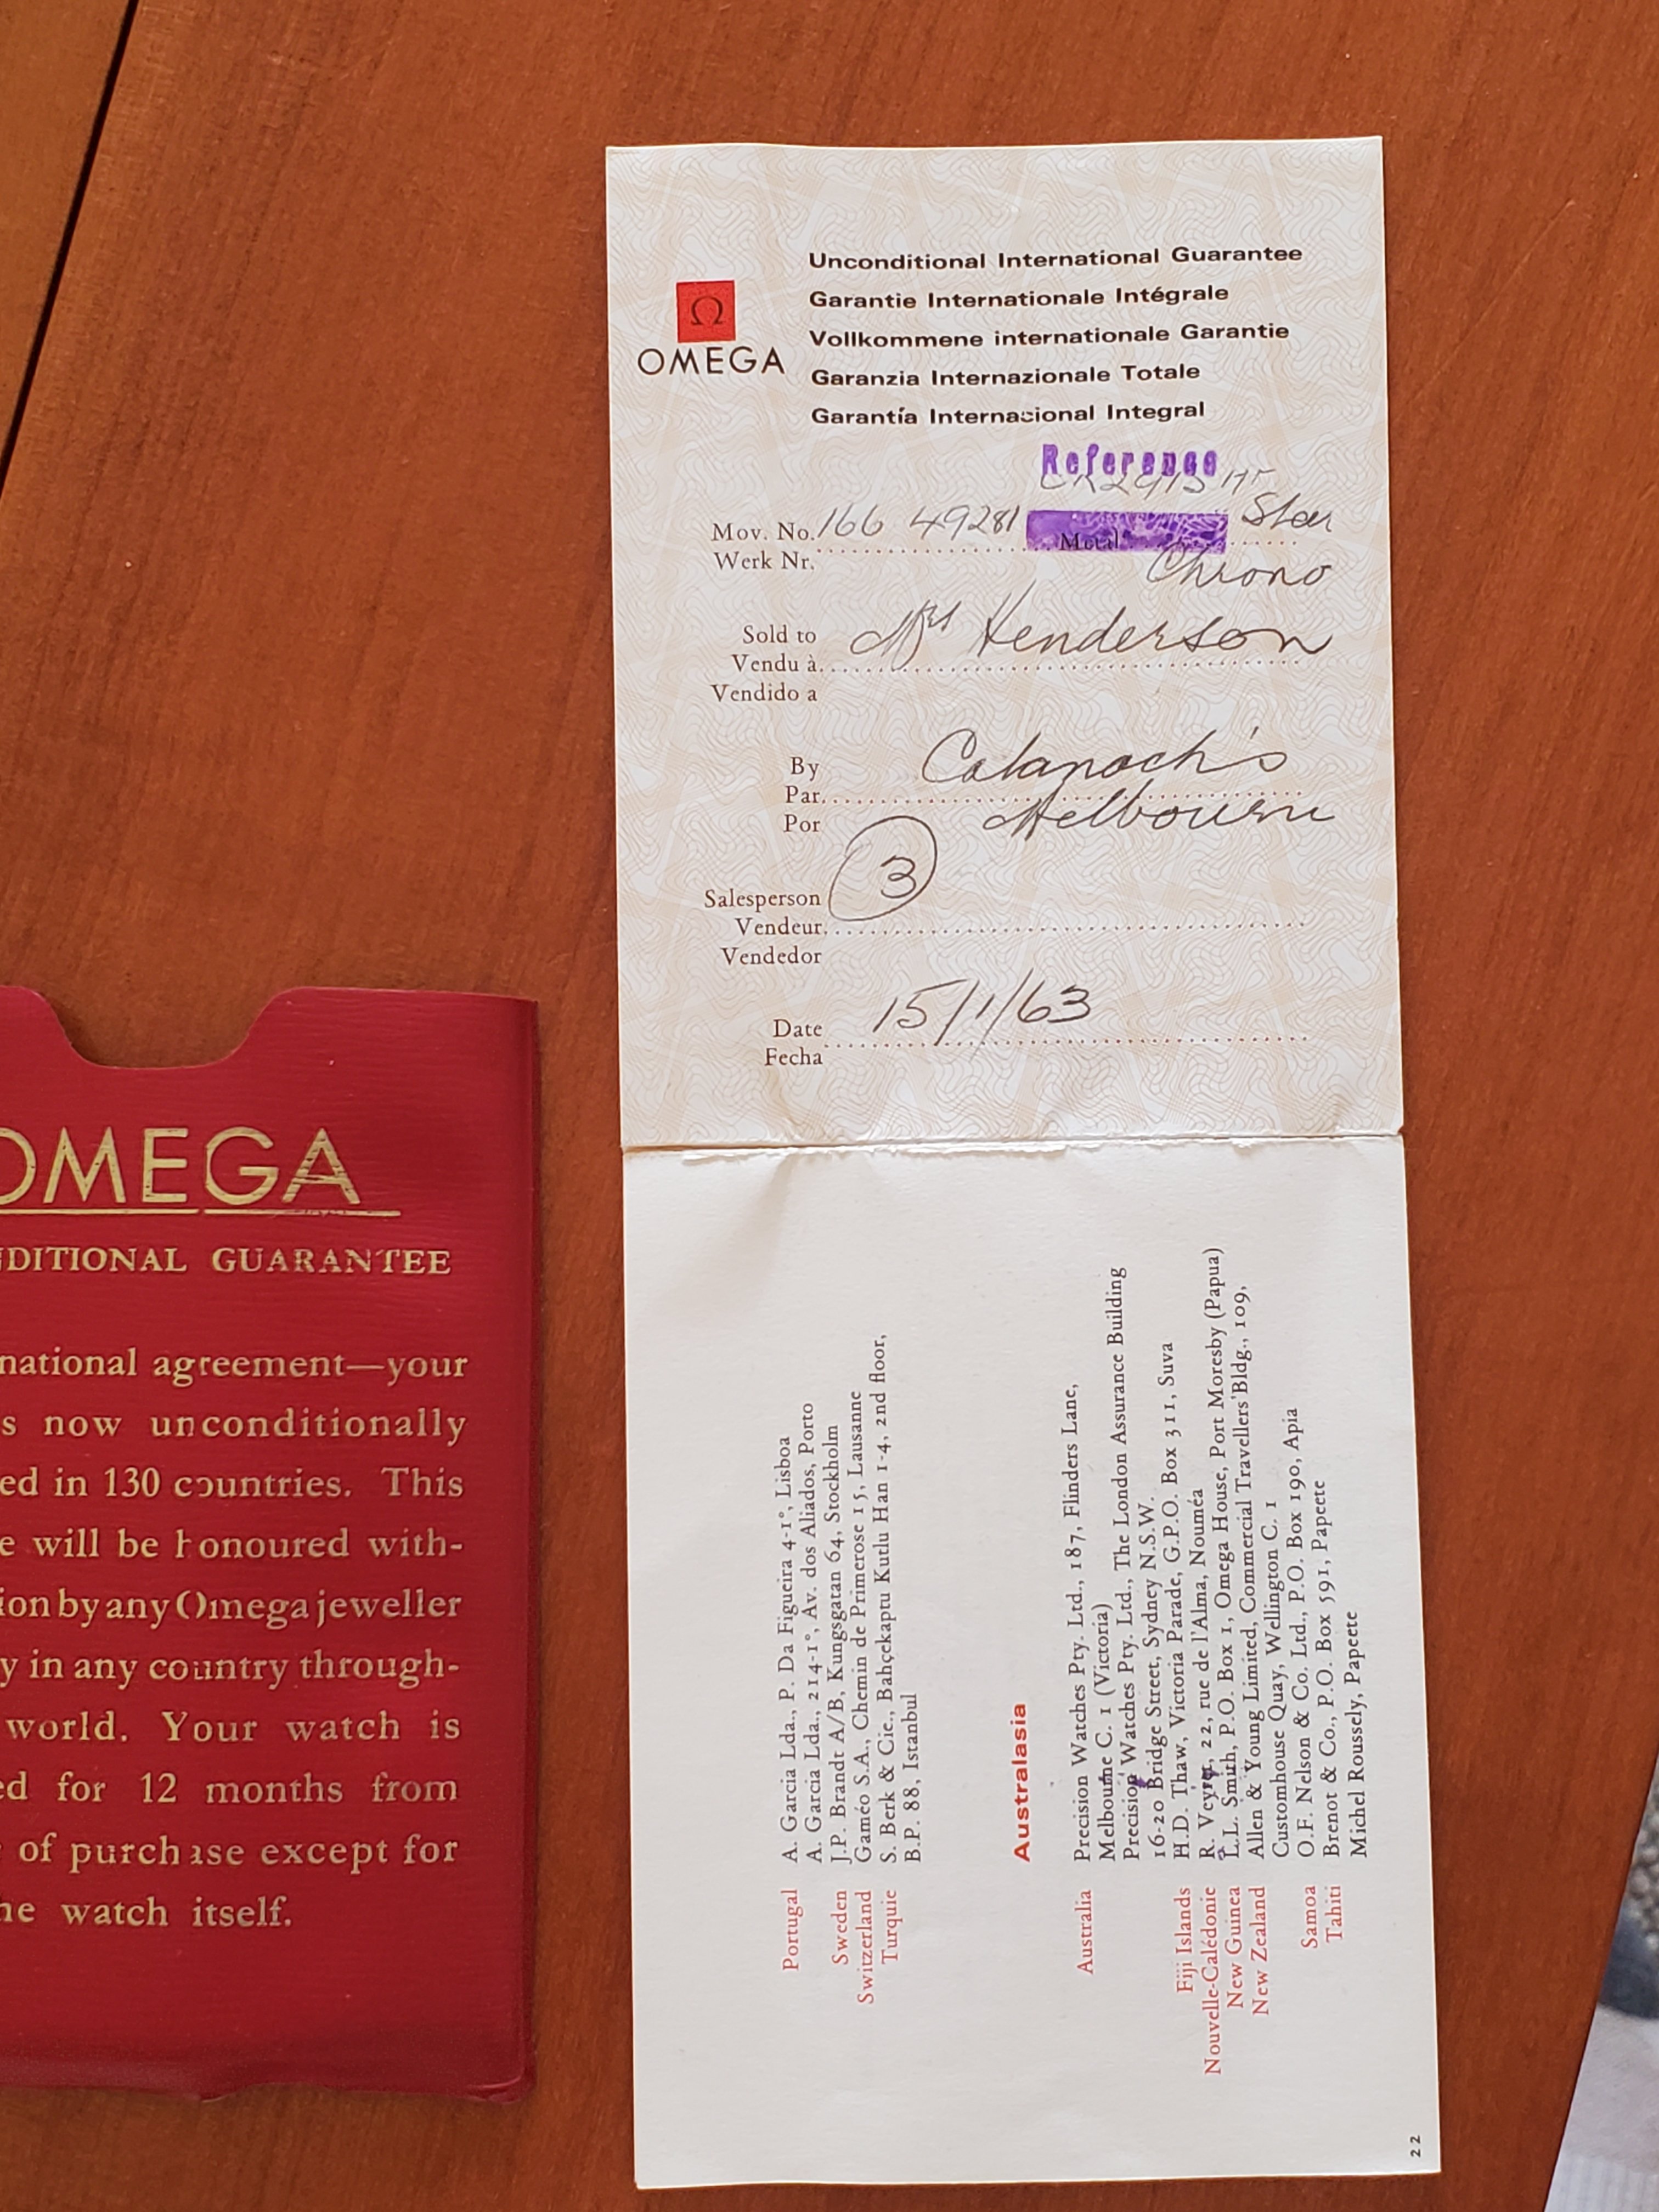 Unconditional International Guarantee
Garantie Internationale Intégrale
Vollkommene internationale Garantie
Garanzia Internazionale Totale
Garantía Internacional Integral
Ω
OMEGA
Reference
Mov. No. 166 49281 Metal
Werk Nr.
Chrono
Sold to
Vendu à Mrs Henderson
Vendido a
By
Par
Por
Melbourne
Salesperson 3
Vendeur
Vendedor
Date 15/1/63
Fecha
OMEGA
GUARANTEE
agreement—your
now unconditionally
in 130 countries. This
will be honoured with-
by any Omega jeweller
in any country through-
world. Your watch is
for 12 months from
of purchase except for
watch itself.
Portugal A. Garcia Lda., P. Da Figueira 4-1°, Lisboa
A. Garcia Lda., 214-1°, Av. dos Aliados, Porto
Sweden J.P. Brandt A/B, Kungsgatan 64, Stockholm
Switzerland Gaméo S.A., Chemin de Primerose 15, Lausanne
Turquie S. Berk & Cie., Bahçekaptu Kutlu Han 1-4, 2nd floor,
B.P. 88, Istanbul
Australasia
Australia Precision Watches Pty. Ltd., 187, Flinders Lane,
Melbourne C. 1 (Victoria)
Precision Watches Pty. Ltd., The London Assurance Building
16-20 Bridge Street, Sydney N.S.W.
Fiji Islands H.D. Thaw, Victoria Parade, G.P.O. Box 311, Suva
Nouvelle-Calédonie R. Veyret, 22, rue de l'Alma, Nouméa
New Guinea L.L. Smith, P.O. Box 1, Omega House, Port Moresby (Papua)
New Zealand Allen & Young Limited, Commercial Travellers' Bldg., 109,
Customhouse Quay, Wellington C. 1
Samoa O.F. Nelson & Co. Ltd., P.O. Box 190, Apia
Tahiti Brenot & Co., P.O. Box 591, Papeete
Michel Roussely, Papeete
22